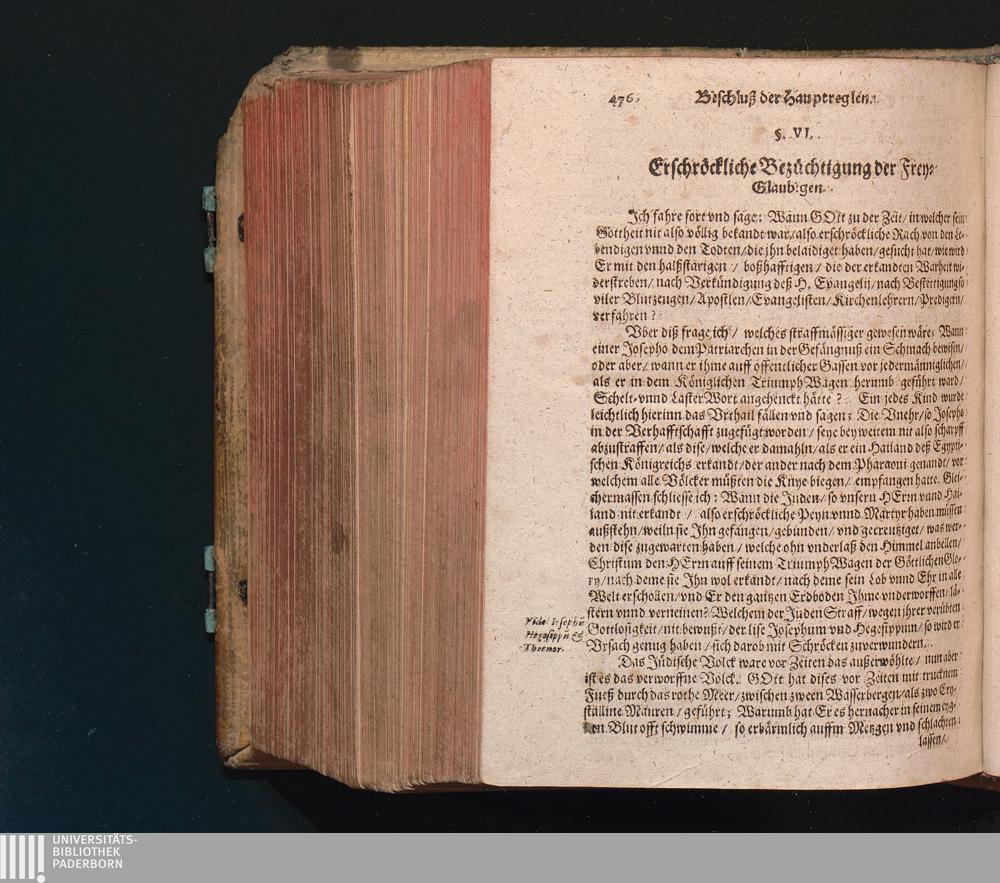 476
Beschluß der Hauptreglen.
§. VI.
Erschröckliche Bezüchtigung der Frey-
Glaubigen.
Ich fahre fort vnd sage: Wann GOtt zu der Zeit/ in welcher sein
Gottheit nit also völlig bekandt war/ also erschröckliche Rach von den Le-
bendigen vnnd den Todten/ die jhn belaidiget haben/ gesucht hat/ wie wird
Er mit den halßstärigen / boßhafftigen / die der erkandten Warheit wi-
derstreben/ nach Verkündigung deß H. Evangelij/ nach Bestättigung so
viler Blutzeugen/ Apostlen/ Evangelisten/ Kirchenlehrern/ Predigern/
verfahren ?
Vber diß frage ich / welches straffmässiger gewesen wäre: Wann
einer Josepho dem Patriarchen in der Gefängnuß ein Schmach bewisen/
oder aber/ wann er ihme auff offentlicher Gassen vor jedermänniglichen/
als er in dem Königlichen Triumph Wagen herumb geführt ward/
Schelt- vnnd Laster Wort angehenckt hätte ? Ein jedes Kind wurde
leichtlich hierinn das Vrthail fällen vnd sagen: Die Vnehr/ so Josepho
in der Verhafftschafft zugefügt worden/ seye bey weitem nit also scharpff
abzustraffen/ als dise/ welche er damahln/ als er ein Hailand deß Egypti-
schen Königreichs erkandt/ der ander nach dem Pharaoni genandt/ vor
welchem alle Völcker müßten die Knye biegen/ empfangen hatte. Glei-
chermassen schliesse ich: Wann die Juden/ so vnsern HErrn vnnd Hai-
land nit erkandt / also erschröckliche Peyn vnnd Martyr haben müssen
außstehn/ weiln sie Ihn gefangen/ gebunden/ vnd gecreutziget/ was wer-
den dise zugewarten haben/ welche ohn vnderlaß den Himmel anbellen/
Christum den HErrn auff seinem Triumph Wagen der Göttlichen Glo-
ry/ nach deme sie Ihn wol erkandt/ nach deme sein Lob vnnd Ehr in alle
Welt erschollen/ vnd Er den gantzen Erdboden Ihme vnderworffen/ lä-
stern vnnd verneinen? Welchem der Juden Straff/ wegen jhrer verübten
Gottlosigkeit/ nit bewußt/ der lise Josephum vnd Hegesippum/ so wird er
Vrsach genug haben/ sich darob mit Schröcken zuverwundern.
Vide Iosephũ
Hegesippũ &
Thoemar.
Das Jüdische Volck ware vor Zeiten das außerwöhlte/ nun aber
ist es das verworffne Volck. GOtt hat dises vor Zeiten mit trucknem
Fueß durch das rothe Meer/ zwischen zween Wasserbergen/ als zwo Cry-
ställine Mauren/ geführt; Warumb hat Er es hernacher in seinem eyg-
nen Blut offt schwimme/ so erbärmlich auffm Metzgen vnd schlachten
lassen/
UNIVERSITÄTS-
BIBLIOTHEK
PADERBORN